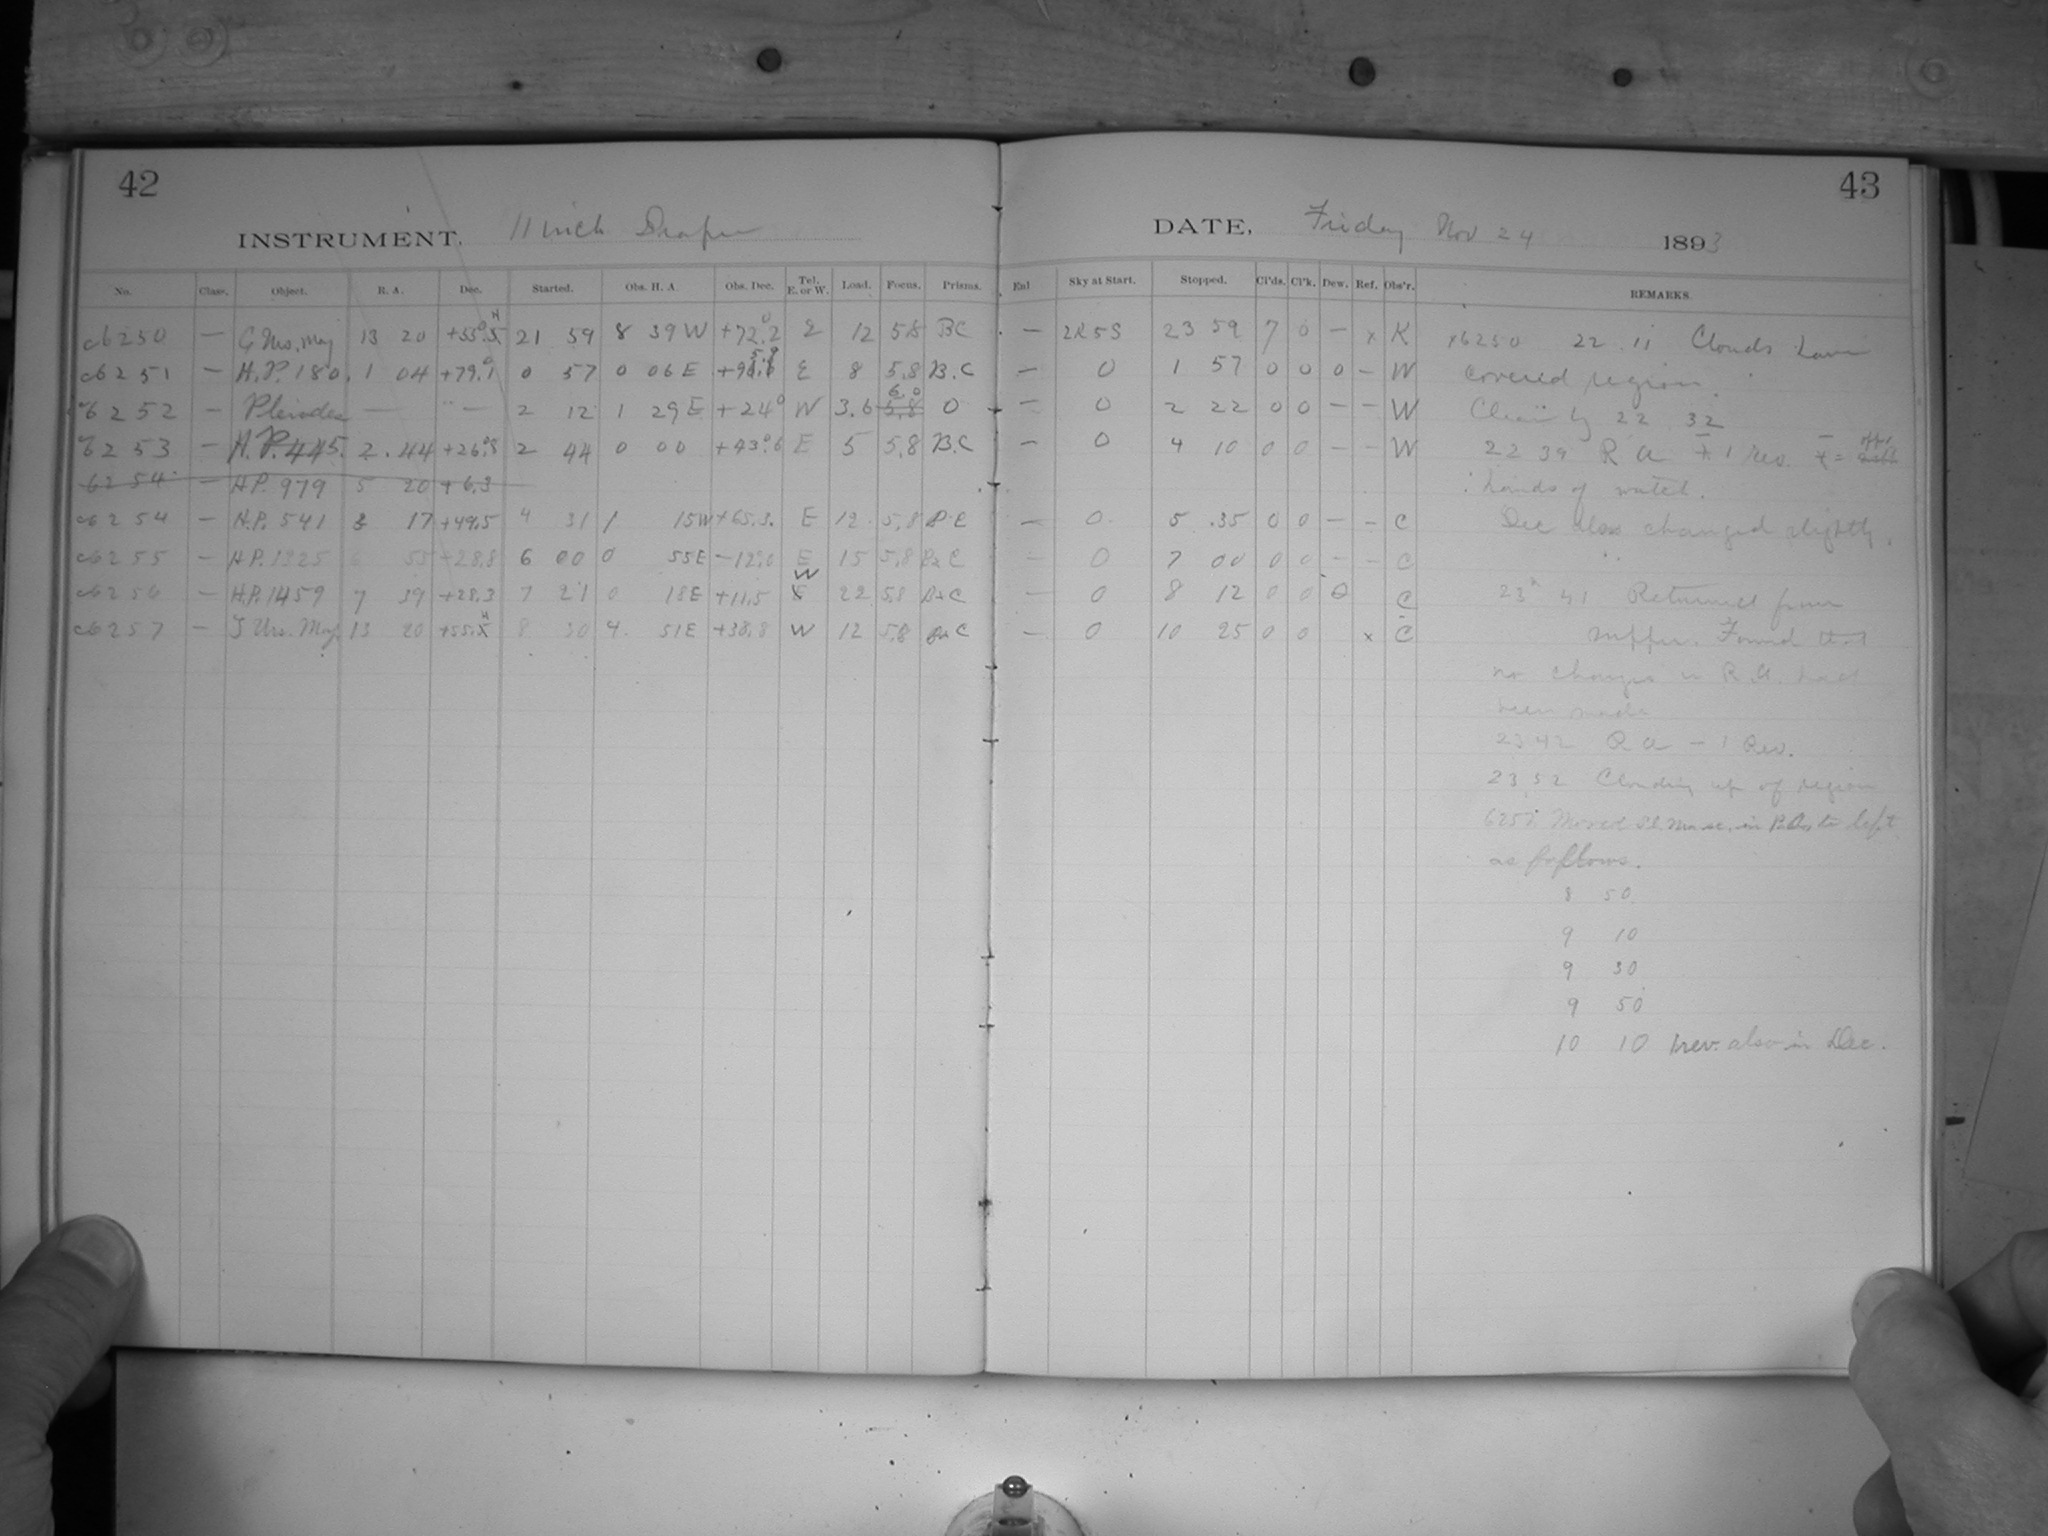 42
INSTRUMENT. 11 inch Draper
No. Class. Object. R. A. Dec. Started. Obs. H. A. Obs. Dec. Tel. E. or W. Load. Focus. Prisms.
c6250 — Urs. Maj 13 20 +55.5 21 59 8 39 W +72.2 E 12 5.8 BC
c6251 — H.P. 180. 1 04 +79.1 0 57 0 06 E E 8 5.8 B.C
c6252 — Pleiades — — 2 12 1 29 E +24° W 3.6 6.0 0
c6253 — H.P. 445. 2.44 +26.8 2 44 0 00 +43.6 E 5 5.8 B.C
6254 — H.P. 979 5 20 +6.3
c6254 — H.P. 541 3 17 +49.5 4 31 1 15 W +65.3. E 12. 5.8
c6255 — H.P. 1325 6 55 +28.8 6 00 0 55E −12.0 E 15 5.8 C
c6256 — H.P. 1459 7 39 +28.3 7 21 0 18E +11.5 W 22 5.8 C
c6257 — Urs. Maj. 13 20 8 30 4 51E +38.8 W 12 5.8 C
43
DATE, Friday Nov 24 1893
Enl Sky at Start. Stopped. Cl'ds. Cl'k. Dew. Ref. Obs'r. REMARKS.
— 2R5S 23 59 7 0 — x K
— 0 1 57 0 0 0 — W
— 0 2 22 0 0 — — W
— 0 4 10 0 0 — — W
— 0. 5 .35 0 0 — — C
— 0 7 00 0 0 — — C
— 0 8 12 0 0 0 C
— 0 10 25 0 0 x C
x6250 22.11 Clouds have
covered region.
Clear by 22 32
22 39 R A 1 rev.
hands of watch.
Dec also changed slightly.
23 41 Returned from
supper. Found that
no changes in R.A. had
been made
23 42 R A — 1 Rev.
23.52 Clouding up of region
6257. Moved in R.A. to left
as follows.
8 50
9 10
9 30
9 50
10 10 1 rev. also in Dec.